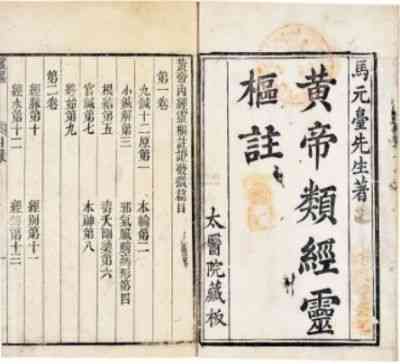 馬元臺先生著
黄帝類經靈
樞註
太醫院藏板
黃帝內經靈樞註證發微篇目
第一卷
九鍼十二原第一　本輸第二
小鍼解第三　邪氣臟腑病形第四
根結第五　壽夭剛柔第六
官鍼第七　本神第八
終始第九
第二卷
經脉第十　經別第十一
經水第十二　經筋第十三